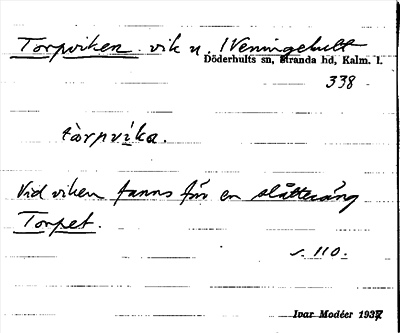 Torpviken. vik u. /Veningehult
Döderhults sn, Stranda hd, Kalm. l.
338
tàrpvi̱ka.
Vid viken fanns förr en slåtteräng
Torpet.
s. 110.
Ivar Modéer 1937